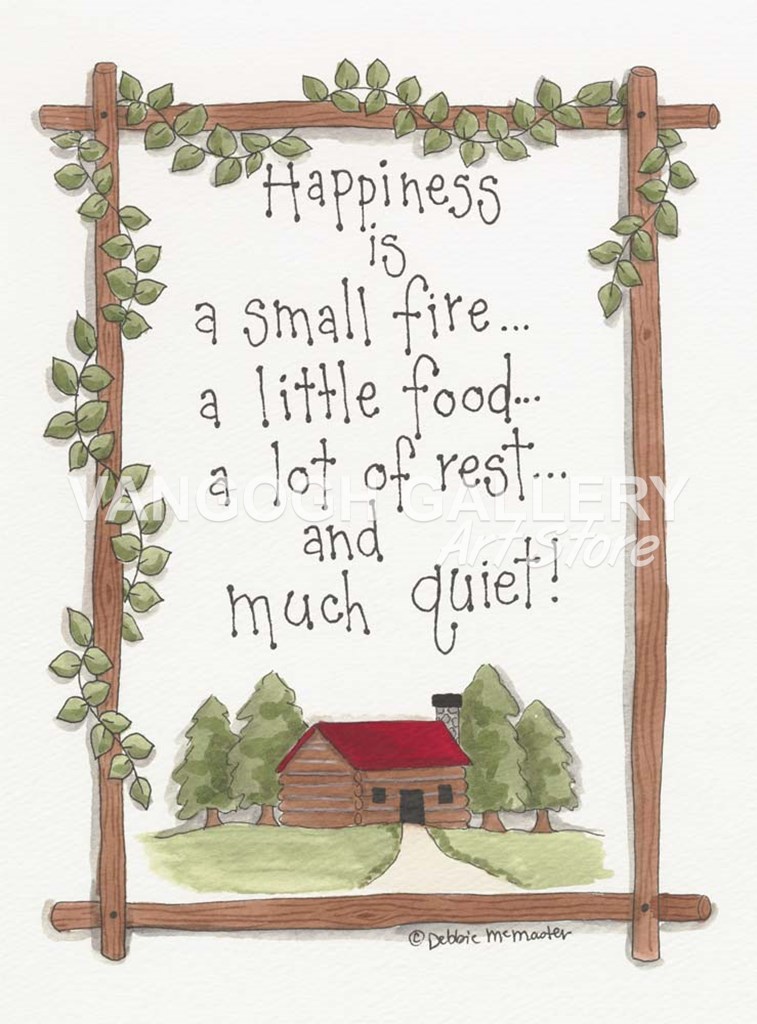 Happiness
is
a small fire...
a little food...
a lot of rest...
and
much quiet!
VANGOGH GALLERY
Art Store
© Debbie McMaster